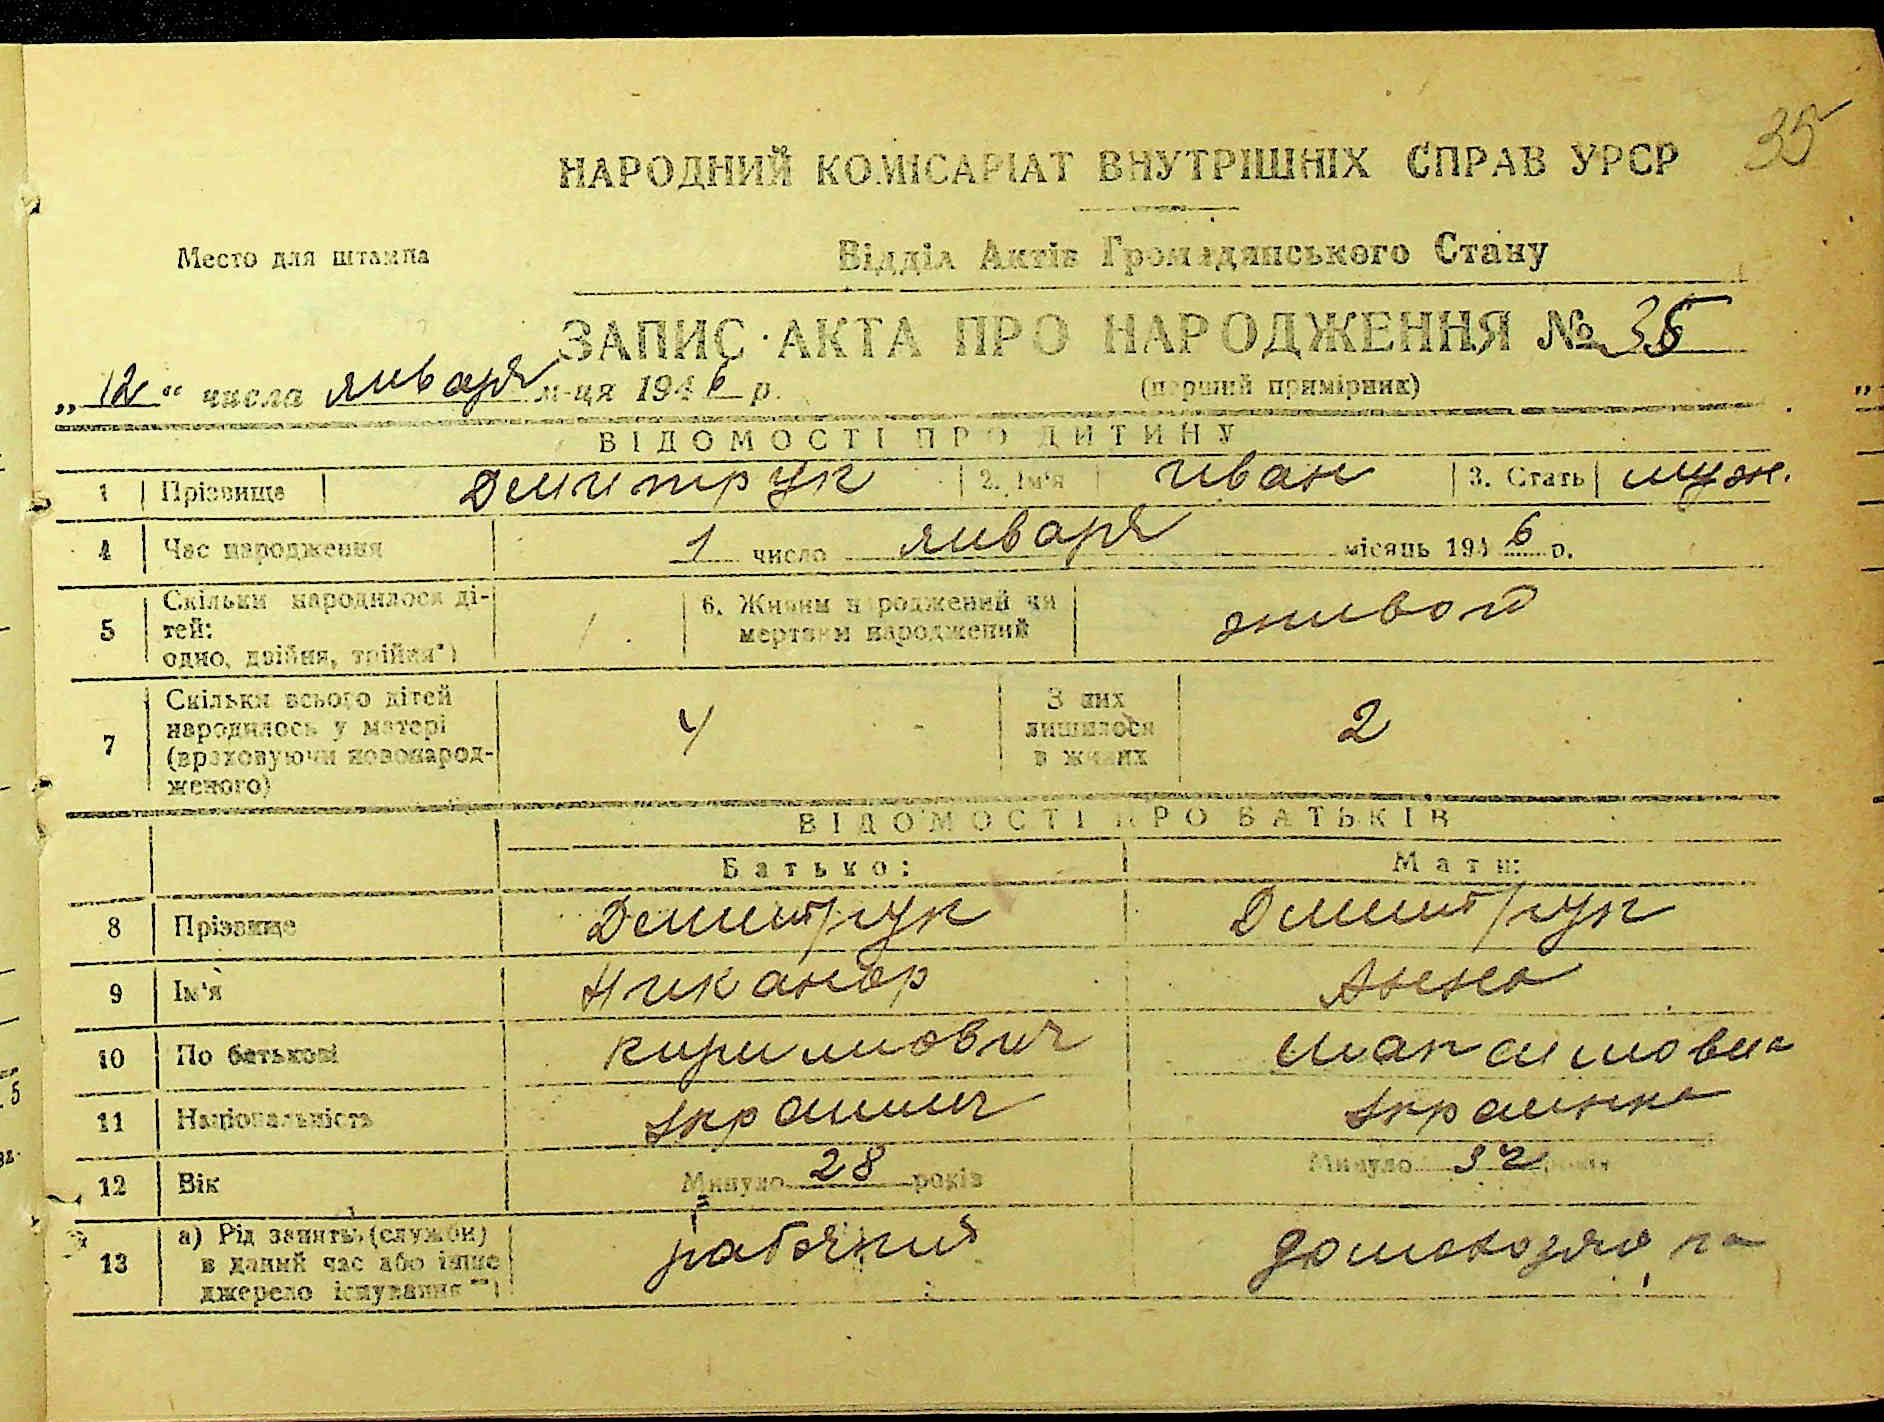 35
НАРОДНИЙ КОМІСАРІАТ ВНУТРІШНІХ СПРАВ УРСР
Место для штампа
Відділ Актів Громадянського Стану
ЗАПИС АКТА ПРО НАРОДЖЕННЯ № 35
„12“ числа января м-ця 1946 р.
(перший примірник)
ВІДОМОСТІ ПРО ДИТИНУ
1 Прізвище Демитрук 2. Ім'я Иван 3. Стать муж.
4 Час народження 1 число января місяць 1946 р.
5 Скільки народилося ді-
тей:
одно, двійня, трійня*)
1
6. Живим народжений чи
мертвим народжений
живой
7 Скільки всього дітей
народилось у матері
(враховуючи новонарод-
женого)
4
З них
лишилося
в живих
2
ВІДОМОСТІ ПРО БАТЬКІВ
Батько: Мати:
8 Прізвище Демитрук Демитрук
9 Ім'я Никанор Анна
10 По батькові Кирилович Максимовна
11 Національність Украинец Украинка
12 Вік Минуло 28 років Минуло років
13 а) Рід занять (служби)
в даний час або інше
джерело існування **)
рабочий домохозяйка